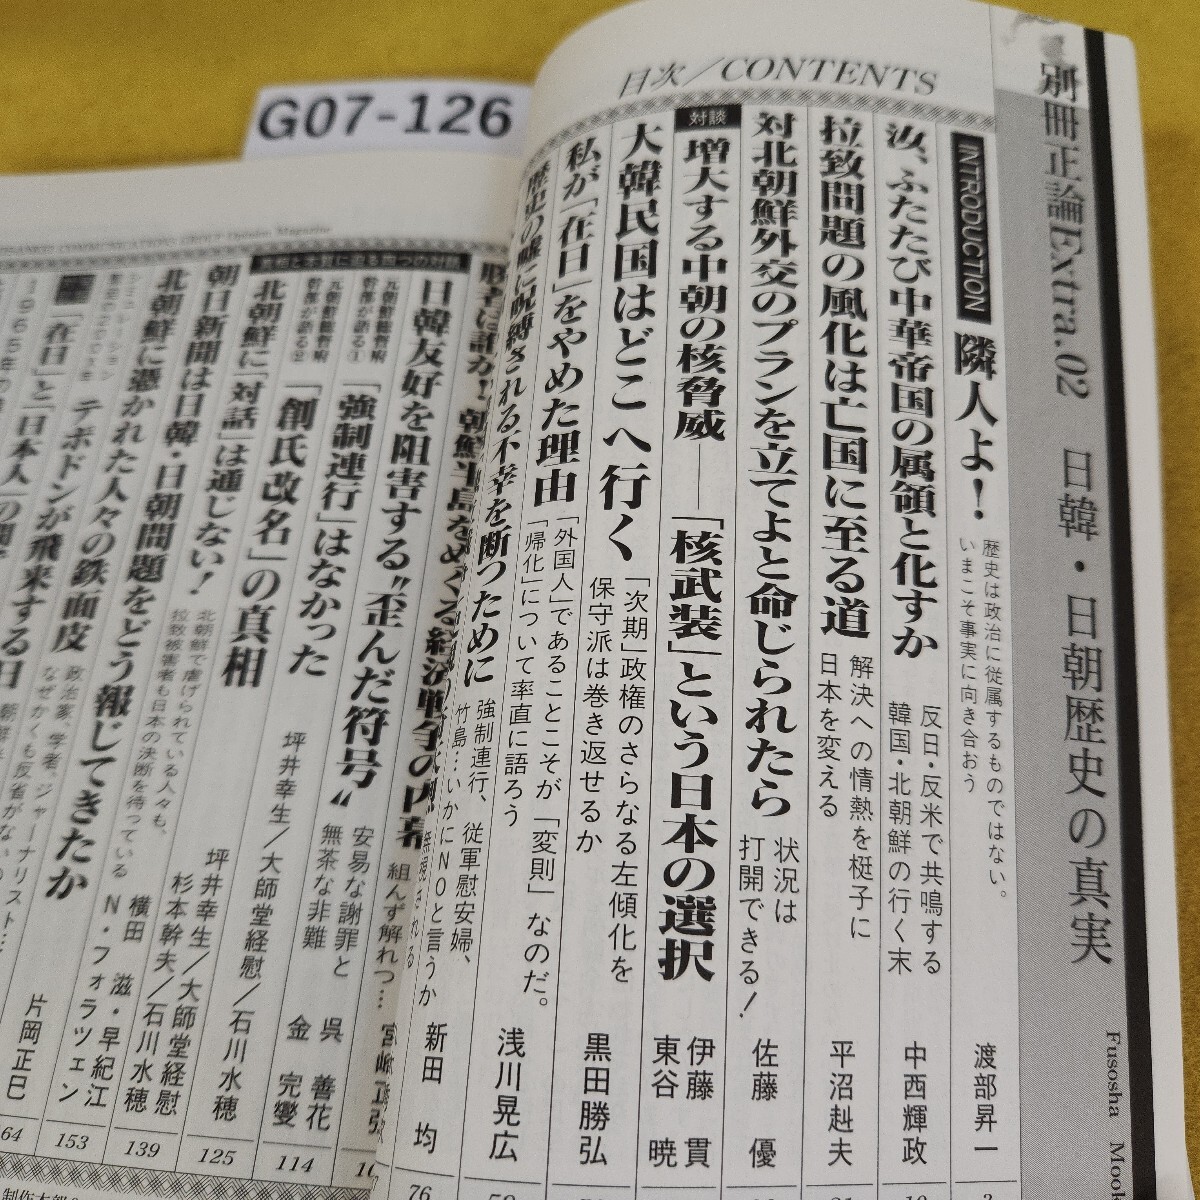 G07-126
別冊正論Extra.02 日韓・日朝歴史の真実
Fusosha Mook
目次／CONTENTS
INTRODUCTION 隣人よ！
歴史は政治に従属するものではない。
いまこそ事実に向き合おう
渡部昇一
汝、ふたたび中華帝国の属領と化すか
反日・反米で共鳴する
韓国・北朝鮮の行く末
中西輝政
拉致問題の風化は亡国に至る道
解決への情熱を梃子に
日本を変える
平沼赳夫
対北朝鮮外交のプランを立てよと命じられたら
状況は
打開できる！
佐藤 優
対談
増大する中朝の核脅威――「核武装」という日本の選択
伊藤 貫
東谷 暁
大韓民国はどこへ行く
「次期」政権のさらなる左傾化を
保守派は巻き返せるか
黒田勝弘
私が「在日」をやめた理由
「外国人」であることこそが「変則」なのだ。
「帰化」について率直に語ろう
浅川晃広
歴史の嘘に呪縛される不幸を断つために
強制連行、従軍慰安婦、
竹島…いかにNOと言うか
新田 均
76
朝鮮半島をめぐる経済戦争の内幕
日韓友好を阻害する〝歪んだ符号〟
安易な謝罪と
無茶な非難
呉 善花
金 完燮
114
真相と本質に迫る四つの対話
元朝鮮総督府
幹部が語る①
「強制連行」はなかった
坪井幸生／大師堂経慰／石川水穂
125
元朝鮮総督府
幹部が語る②
「創氏改名」の真相
坪井幸生／大師堂経慰
杉本幹夫／石川水穂
139
北朝鮮に「対話」は通じない！
北朝鮮で虐げられている人々も、
拉致被害者も日本の決断を待っている
横田 滋・早紀江
N・フォラツェン
153
朝日新聞は日韓・日朝問題をどう報じてきたか
片岡正巳
64
北朝鮮に憑かれた人々の鉄面皮
政治家、学者、ジャーナリスト…
なぜかくも反省がない
テポドンが飛来する日
「在日」と「日本人」の間